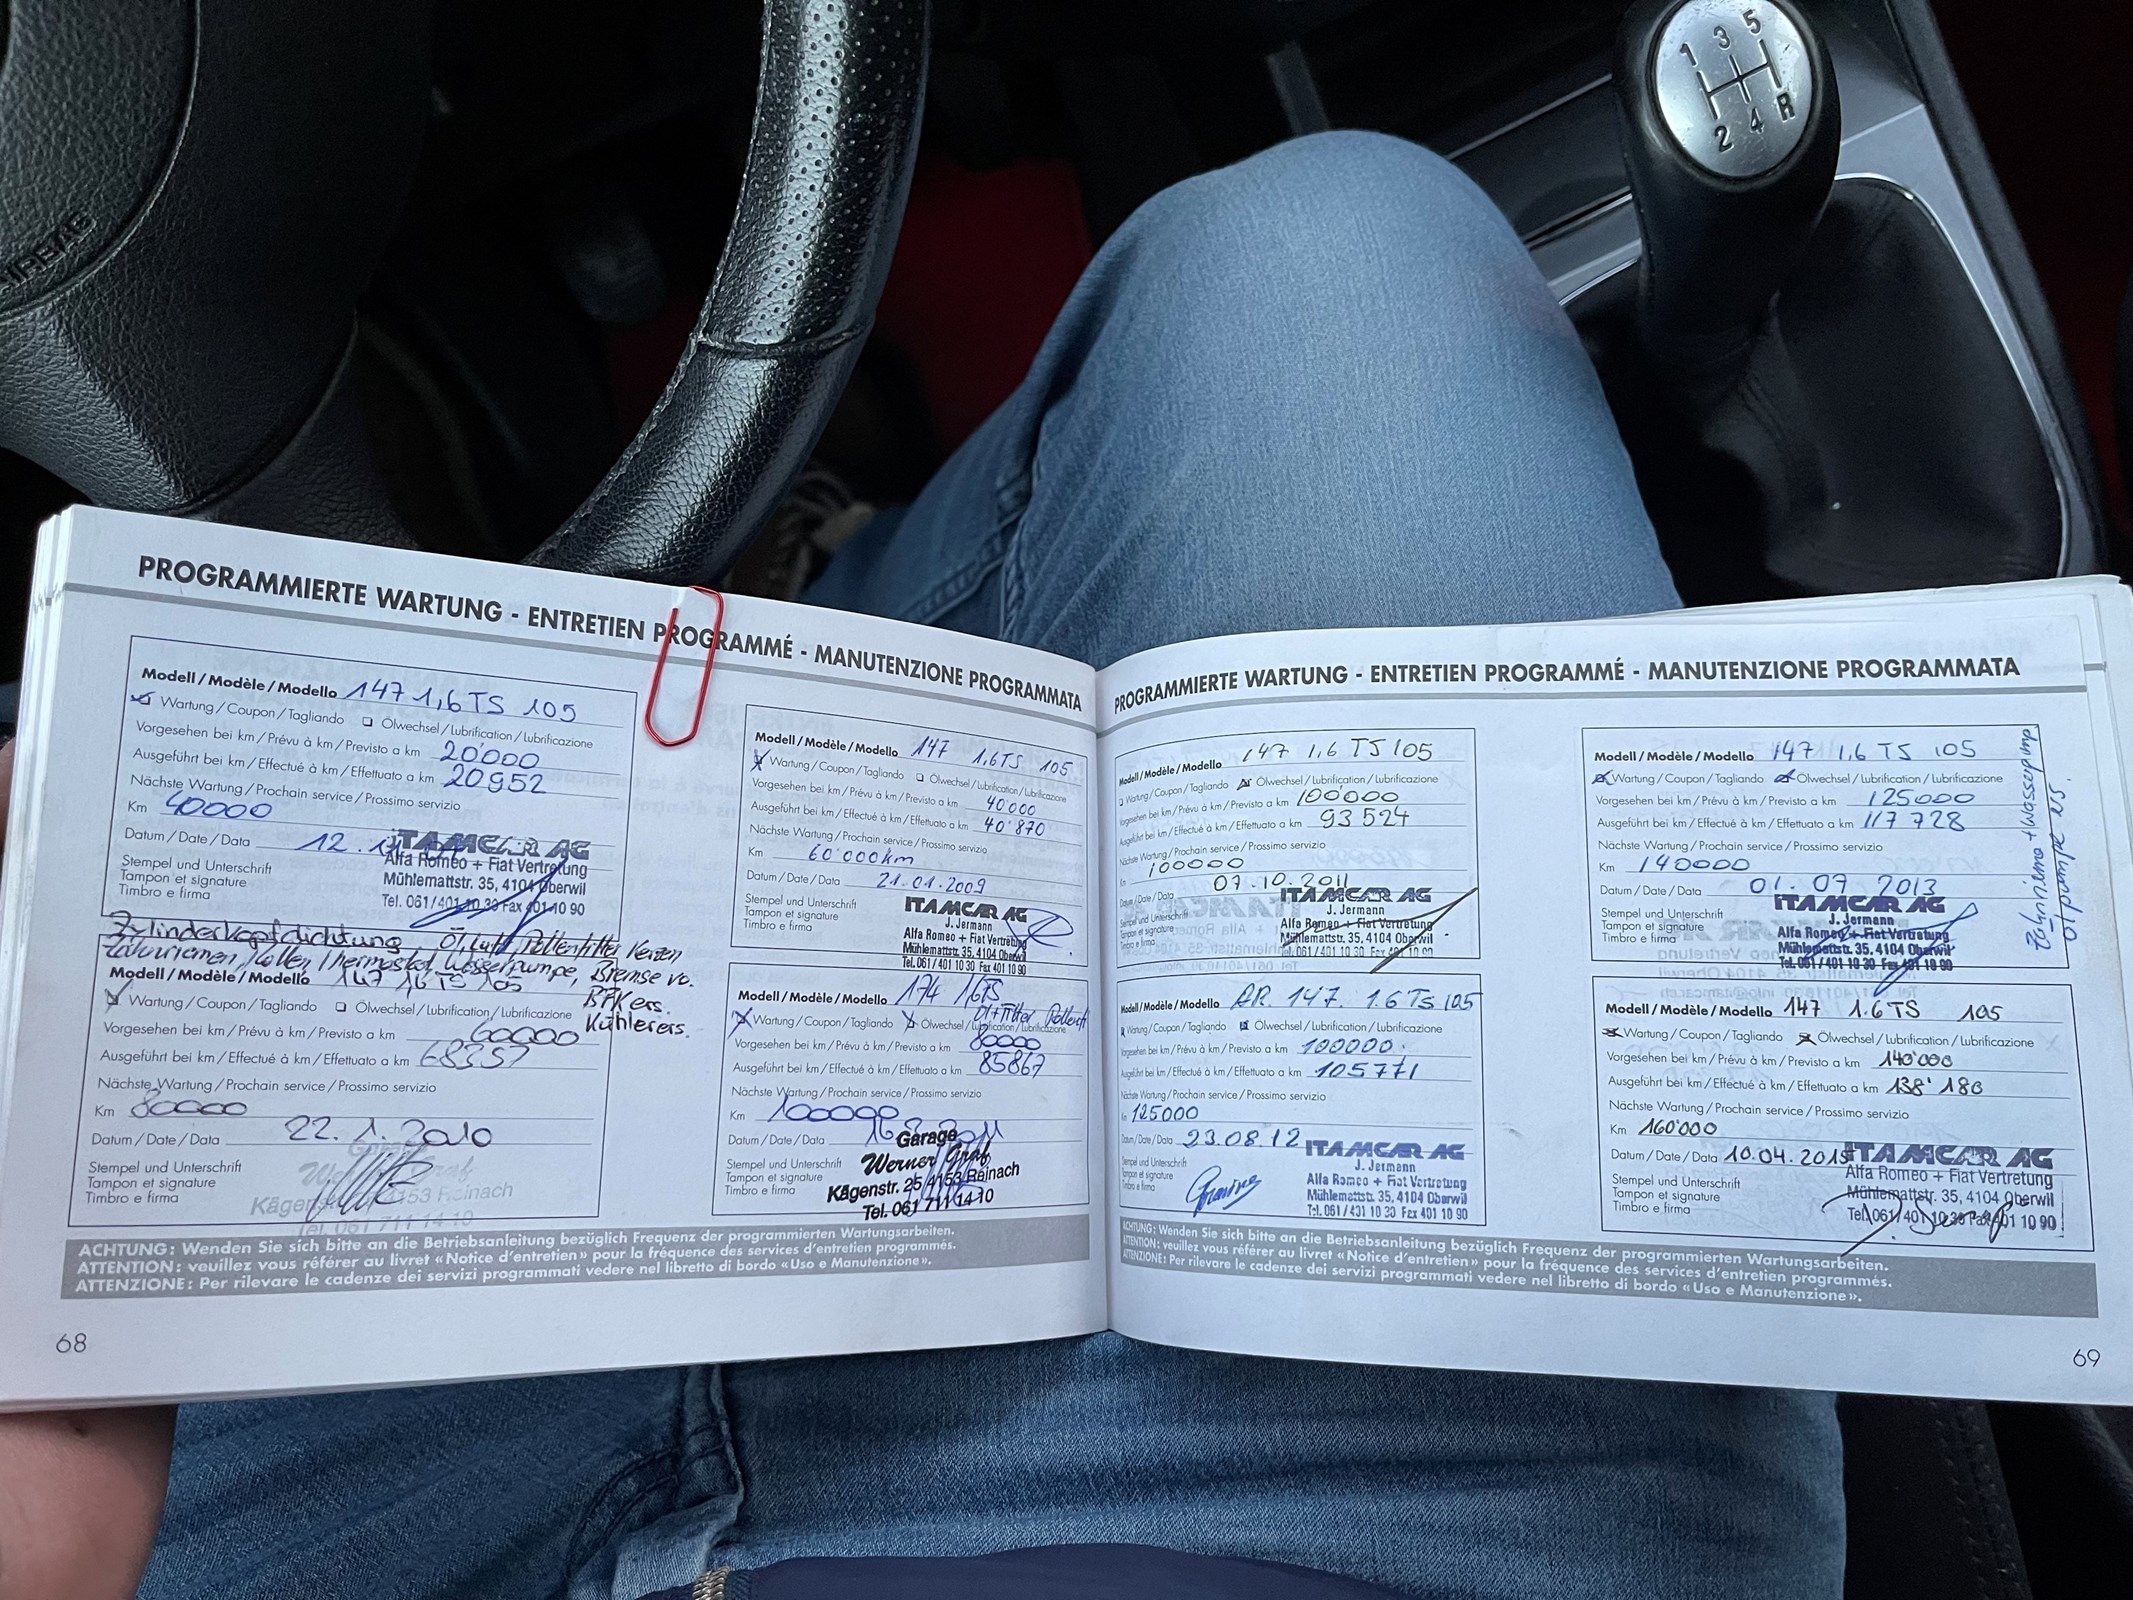 1 3 5
2 4 R
AIRBAG
PROGRAMMIERTE WARTUNG - ENTRETIEN PROGRAMMÉ - MANUTENZIONE PROGRAMMATA
Modell / Modèle / Modello 147 1,6 TS 105
Wartung / Coupon / Tagliando Ölwechsel / Lubrification / Lubrificazione
Vorgesehen bei km / Prévu à km / Previsto a km 20'000
Ausgeführt bei km / Effectué à km / Effettuato a km 20952
Nächste Wartung / Prochain service / Prossimo servizio
Km 40000
Datum / Date / Data 12.
Stempel und Unterschrift
Tampon et signature
Timbro e firma
ITAMCAR AG
Alfa Romeo + Fiat Vertretung
Mühlemattstr. 35, 4104 Oberwil
Tel. 061/401 10 30 Fax 401 10 90
Zylinderkopfdichtung, Öl, Luft, Pollenfilter Kerzen
Zahnriemen, Rollen, Thermostat, Wasserpumpe, Bremse vo.
BFK ers.
Kühlerers.
Modell / Modèle / Modello 147 16 TS 105
Wartung / Coupon / Tagliando Ölwechsel / Lubrification / Lubrificazione
Vorgesehen bei km / Prévu à km / Previsto a km 60000
Ausgeführt bei km / Effectué à km / Effettuato a km 68357
Nächste Wartung / Prochain service / Prossimo servizio
Km 80000
Datum / Date / Data 22. 1. 2010
Stempel und Unterschrift
Tampon et signature
Timbro e firma
Garage
Werner Graf
4153 Reinach
Tel. 061 711 14 10
Modell / Modèle / Modello 147 1.6TS 105
Wartung / Coupon / Tagliando Ölwechsel / Lubrification / Lubrificazione
Vorgesehen bei km / Prévu à km / Previsto a km 40'000
Ausgeführt bei km / Effectué à km / Effettuato a km 40'870
Nächste Wartung / Prochain service / Prossimo servizio
Km 60'000km
Datum / Date / Data 21.01.2009
Stempel und Unterschrift
Tampon et signature
Timbro e firma
ITAMCAR AG
J. Jermann
Alfa Romeo + Fiat Vertretung
Mühlemattstr. 35, 4104 Oberwil
Tel. 061/401 10 30 Fax 401 10 90
Modell / Modèle / Modello 174 16TS
Öl+Filter
Wartung / Coupon / Tagliando Ölwechsel / Lubrification / Lubrificazione
Vorgesehen bei km / Prévu à km / Previsto a km 80000
Ausgeführt bei km / Effectué à km / Effettuato a km 85867
Nächste Wartung / Prochain service / Prossimo servizio
Km 100000
Datum / Date / Data
Stempel und Unterschrift
Tampon et signature
Timbro e firma
Garage
Werner Graf
Kägenstr. 25 4153 Reinach
Tel. 061 711 14 10
ACHTUNG: Wenden Sie sich bitte an die Betriebsanleitung bezüglich Frequenz der programmierten Wartungsarbeiten.
ATTENTION: veuillez vous référer au livret «Notice d'entretien» pour la fréquence des services d'entretien programmés.
ATTENZIONE: Per rilevare le cadenze dei servizi programmati vedere nel libretto di bordo «Uso e Manutenzione».
68
PROGRAMMIERTE WARTUNG - ENTRETIEN PROGRAMMÉ - MANUTENZIONE PROGRAMMATA
Modell / Modèle / Modello 147 1,6 TS 105
Wartung / Coupon / Tagliando Ölwechsel / Lubrification / Lubrificazione
Vorgesehen bei km / Prévu à km / Previsto a km 100'000
Ausgeführt bei km / Effectué à km / Effettuato a km 93 524
Nächste Wartung / Prochain service / Prossimo servizio
Km 100000
Datum / Date / Data 07.10.2011
Stempel und Unterschrift
Tampon et signature
Timbro e firma
ITAMCAR AG
J. Jermann
Alfa Romeo + Fiat Vertretung
Mühlemattstr. 35, 4104 Oberwil
Tel. 061/401 10 30 Fax 401 10 90
Modell / Modèle / Modello AR. 147. 1.6 TS 105
Wartung / Coupon / Tagliando Ölwechsel / Lubrification / Lubrificazione
Vorgesehen bei km / Prévu à km / Previsto a km 100000.
Ausgeführt bei km / Effectué à km / Effettuato a km 105771
Nächste Wartung / Prochain service / Prossimo servizio
Km 125000
Datum / Date / Data 23.08.12
Stempel und Unterschrift
Tampon et signature
Timbro e firma
ITAMCAR AG
J. Jermann
Alfa Romeo + Fiat Vertretung
Mühlemattstr. 35, 4104 Oberwil
Tel. 061/401 10 30 Fax 401 10 90
Modell / Modèle / Modello 147 1,6 TS 105
Wartung / Coupon / Tagliando Ölwechsel / Lubrification / Lubrificazione
Vorgesehen bei km / Prévu à km / Previsto a km 125000
Ausgeführt bei km / Effectué à km / Effettuato a km 117 728
Nächste Wartung / Prochain service / Prossimo servizio
Km 140000
Datum / Date / Data 01. 07. 2013
Stempel und Unterschrift
Tampon et signature
Timbro e firma
ITAMCAR AG
J. Jermann
Alfa Romeo + Fiat Vertretung
Mühlemattstr. 35, 4104 Oberwil
Tel. 061/401 10 30 Fax 401 10 90
Modell / Modèle / Modello 147 1.6 TS 105
Wartung / Coupon / Tagliando Ölwechsel / Lubrification / Lubrificazione
Vorgesehen bei km / Prévu à km / Previsto a km 140'000
Ausgeführt bei km / Effectué à km / Effettuato a km 138' 180
Nächste Wartung / Prochain service / Prossimo servizio
Km 160'000
Datum / Date / Data 10.04.2015
Stempel und Unterschrift
Tampon et signature
Timbro e firma
ITAMCAR AG
Alfa Romeo + Fiat Vertretung
Mühlemattstr. 35, 4104 Oberwil
Tel. 061/401 10 30 Fax 401 10 90
ACHTUNG: Wenden Sie sich bitte an die Betriebsanleitung bezüglich Frequenz der programmierten Wartungsarbeiten.
ATTENTION: veuillez vous référer au livret «Notice d'entretien» pour la fréquence des services d'entretien programmés.
ATTENZIONE: Per rilevare le cadenze dei servizi programmati vedere nel libretto di bordo «Uso e Manutenzione».
69